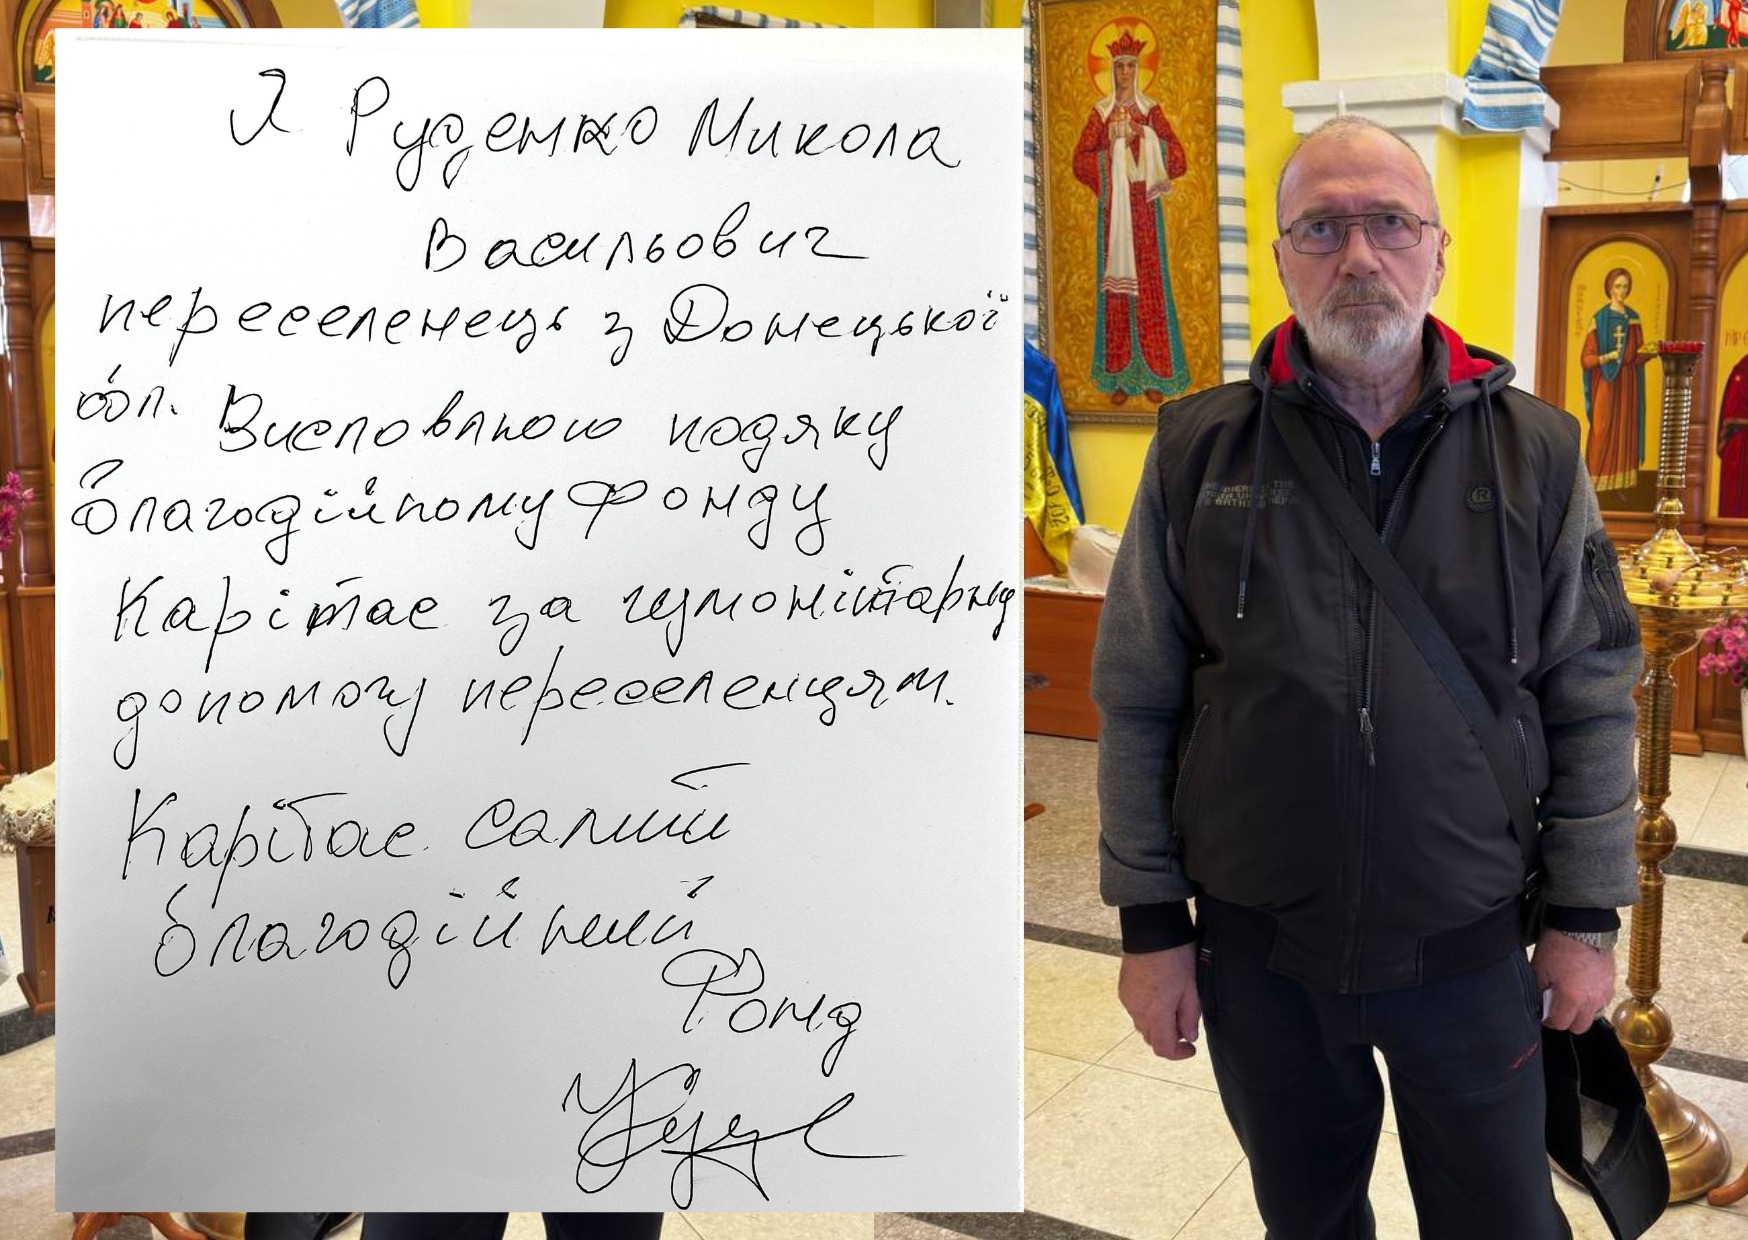 Я Руденко Микола
Васильович
переселенець з Донецької
обл. Висловлюю подяку
благодійному Фонду
Карітас за гумонітарну
допомогу переселенцям.
Карітас самий
благодійний
Фонд